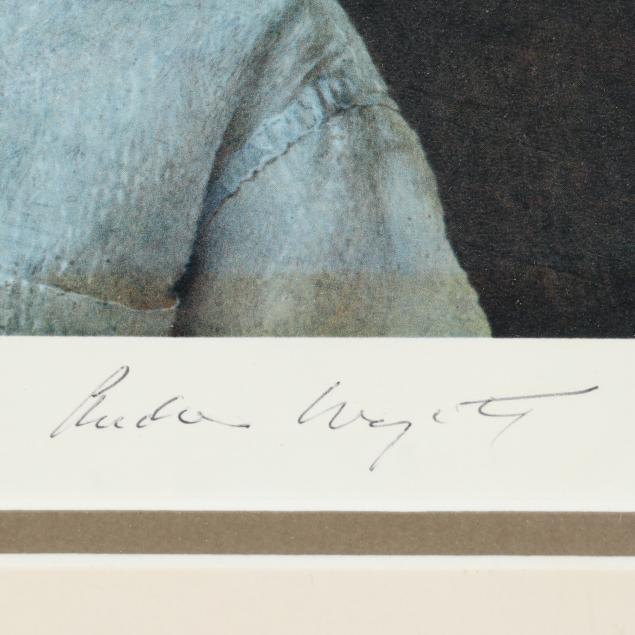 Andrew Wyeth